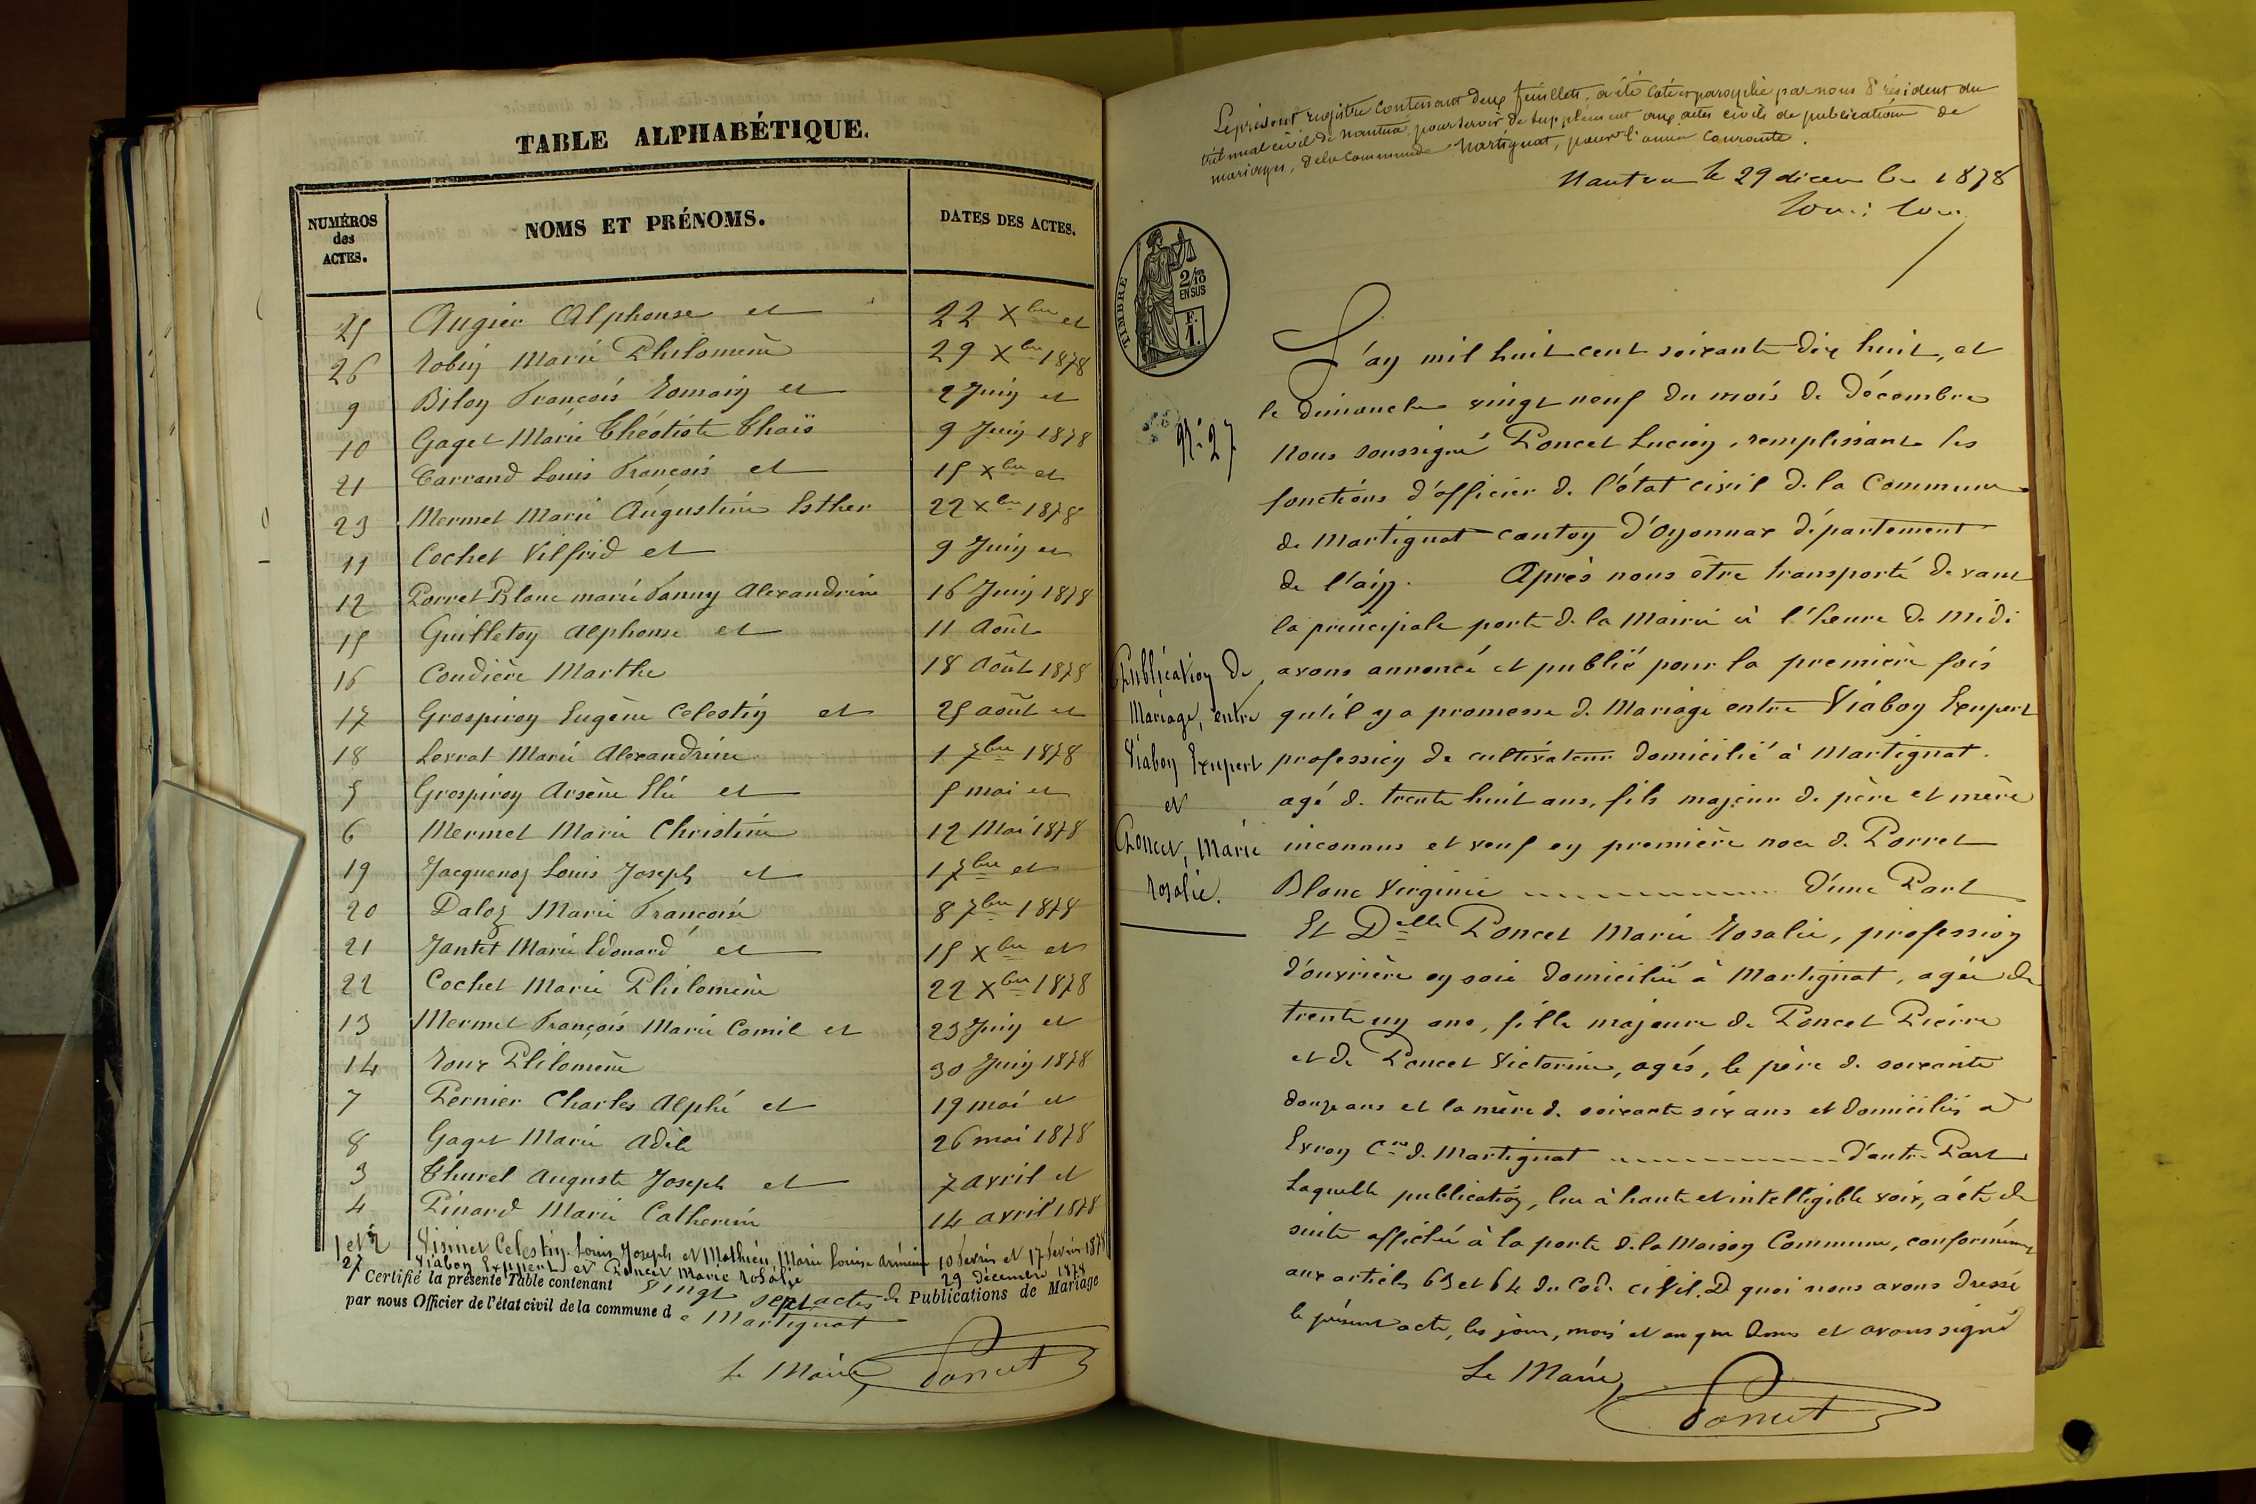 TABLE ALPHABÉTIQUE.
NUMÉROS
des
ACTES.
NOMS ET PRÉNOMS.
DATES DES ACTES.
25 Augier Alphonse et 22 Xbre et
26 Robin Marie Philomène 29 Xbre 1878
9 Biloy François Romain et 2 Juin et
10 Gaget Marie Théotiste Thaïs 9 Juin 1878
21 Carrand Louis François et 15 Xbre et
23 Mermet Marie Augustine Esther 22 Xbre 1878
11 Cochet Vilfrid et 9 Juin et
12 Porret Blanc marie Fanny Alexandrine 16 Juin 1878
15 Guilleton Alphonse et 11 Août
16 Coudière Marthe 18 Août 1878
17 Grospiron Eugène Celestin et 25 août et
18 Lerrat Marie Alexandrine 1 7bre 1878
5 Grospiron Arsène Elie et 5 mai et
6 Mermet Marie Christine 12 Mai 1878
19 Jacquenoz Louis Joseph et 1 7bre et
20 Daloz Marie Françoise 8 7bre 1878
21 Jantet Marie Edouard et 15 Xbre et
22 Cochet Marie Philomène 22 Xbre 1878
13 Mermet François Marie Comil et 23 Juin et
14 Roux Philomène 30 Juin 1878
7 Pernier Charles Alphé et 19 mai et
8 Gaget Marie Adèle 26 mai 1878
3 Thurel Auguste Joseph et 7 avril et
4 Pinard Marie Catherine 14 avril 1878
1 et 2 Visinet Celestin Louis Joseph et Mathieu Marie Louise Arménie 10 Fevrier et 17 Fevrier 1878
27 Viabon Exupert et Poncet Marie Rosalie 29 décembre 1878
Certifié la présente Table contenant Vingt sept actes de Publications de Mariage
par nous Officier de l'état civil de la commune de Martignat
Le Maire, Poncet
Le présent registre contenant deux feuillets, a été coté et paraphé par nous Président du
tribunal civil de Nantua, pour servir de supplément aux actes civils de publication de
mariages, de la commune de Martignat, pour l'année courante.
Nantua le 29 décembre 1878
TIMBRE
2/10
EN SUS
F.
1.
N° 27
Publication de
Mariage, entre
Viabon Exupert
et
Poncet, Marie
Rosalie.
L'an mil huit cent soixante dix huit, et
le dimanche vingt neuf du mois de Décembre
Nous soussigné Poncet Lucien, remplissant les
fonctions d'officier de l'état civil de la Commune
de Martignat canton d'Oyonnax département
de l'ain. Après nous être transporté devant
la principale porte de la Mairie à l'heure de midi
avons annoncé et publié pour la première fois
qu'il y a promesse de Mariage entre Viabon Exupert
profession de cultivateur domicilié à Martignat.
agé de trente huit ans, fils majeur de père et mère
inconnus et veuf en première noce de Porret
Blanc Virginie d'une Part
Et Delle Poncet Marie Rosalie, profession
d'ouvrière en soie domiciliée à Martignat, agée de
trente un ans, fille majeure de Poncet Pierre
et de Poncet Victorine, agés, le père de soixante
douze ans et la mère de soixante six ans et domiciliés à
Evron Cne de Martignat d'autre Part
Laquelle publication, lue à haute et intelligible voix, a été de
suite affichée à la porte de la Maison Commune, conformément
aux articles 63 et 64 du Code civil. De quoi nous avons dressé
le présent acte, les jour, mois et an que dessus et avons signé
Le Maire,
Poncet